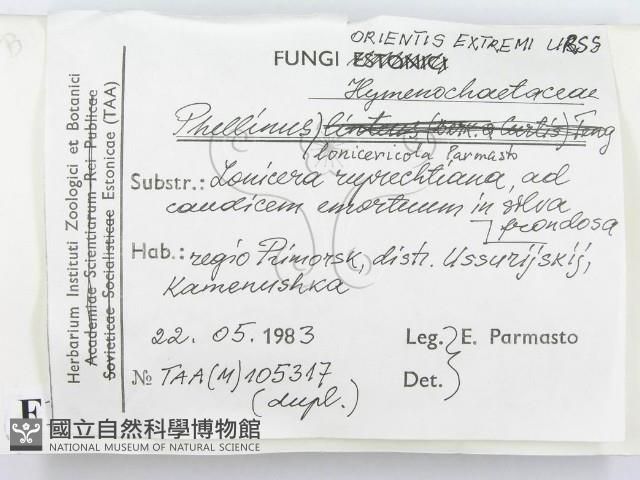 ORIENTIS EXTREMI URSS
FUNGI ESTONICI
Hymenochaetaceae
Phellinus linteus (Berk. & Curtis) Teng
lonicericola Parmasto
Substr.: Lonicera ruprechtiana, ad
caudicem emortuum in silva
frondosa
Hab.: regio Primorsk, distr. Ussurijskij,
Kamenushka
22. 05. 1983
Leg. E. Parmasto
Det.
№ TAA(M) 105317
(dupl.)
Herbarium Instituti Zoologici et Botanici
Academiae Scientiarum Rei Publicae
Sovieticae Socialisticae Estonicae (TAA)
E
國立自然科學博物館
NATIONAL MUSEUM OF NATURAL SCIENCE